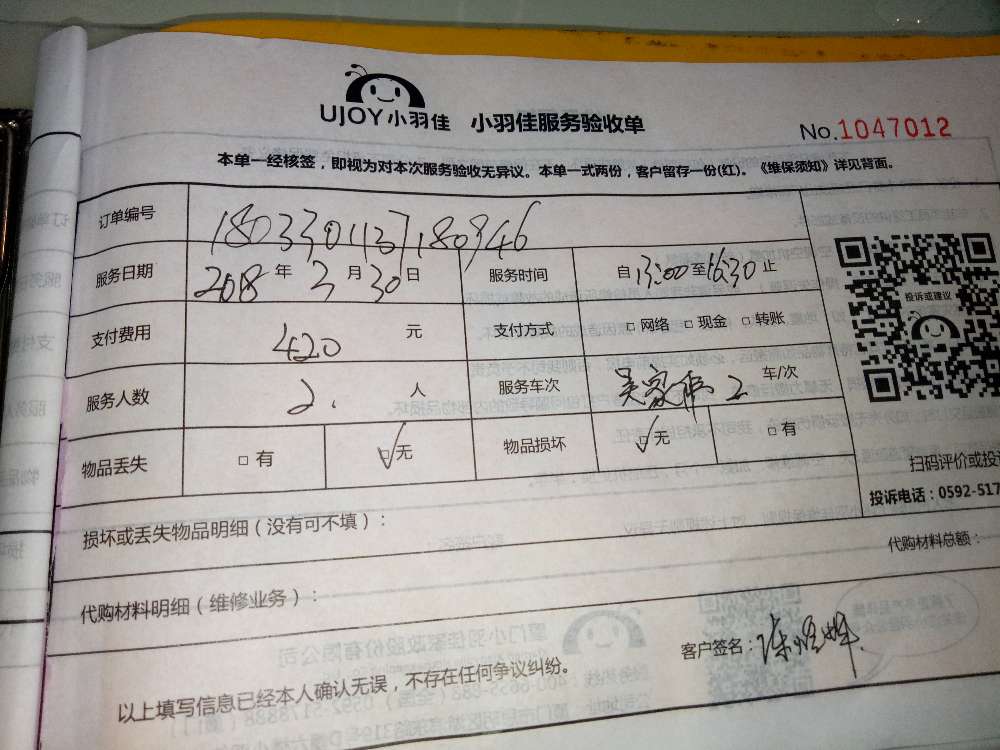 UJOY小羽佳 小羽佳服务验收单
No.1047012
本单一经核签，即视为对本次服务验收无异议。本单一式两份，客户留存一份(红)。《维保须知》详见背面。
订单编号
服务日期 2018 年 3 月 30 日 服务时间 自 13:00 至 16:30 止
投诉或建议
支付费用 420 元 支付方式 □ 网络 □ 现金 □ 转账
服务人数 2. 人 服务车次 2 车/次
物品丢失 □ 有 ☑ 无 物品损坏 ☑ 无 □ 有
扫码评价或投
投诉电话：0592-517
损坏或丢失物品明细（没有可不填）：
代购材料总额：
代购材料明细（维修业务）：
客户签名：
以上填写信息已经本人确认无误，不存在任何争议纠纷。